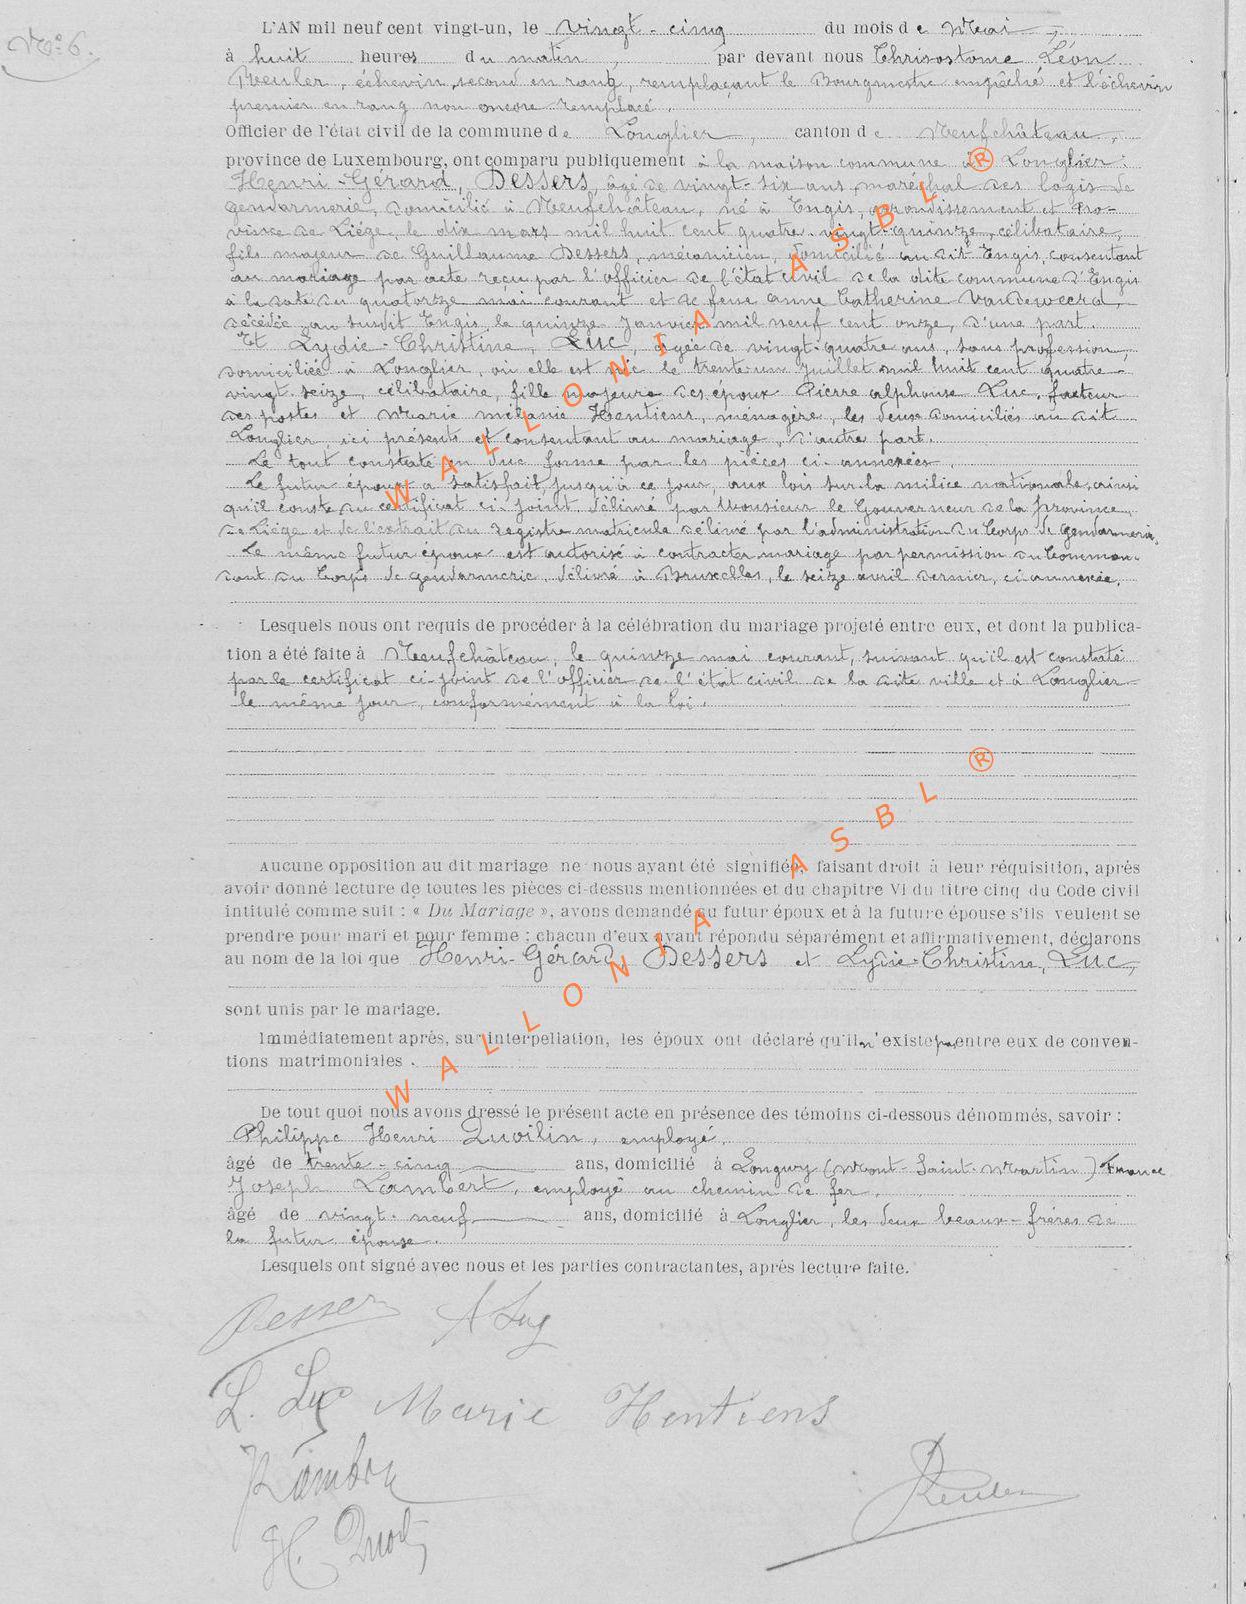 N° 6.
L'AN mil neuf cent vingt-un, le vingt-cinq du mois de Mai,
à huit heures du matin, par devant nous Chrisostome Léon
Reuler, échevin second en rang, remplaçant le Bourgmestre empêché et l'échevin
premier en rang non encore remplacé.
Officier de l'état civil de la commune de Longlier, canton de Neufchâteau,
province de Luxembourg, ont comparu publiquement à la maison commune à Longlier:
Henri-Gérard, Dessers, âgé de vingt-six ans, maréchal des logis de
gendarmerie, domicilié à Neufchâteau, né à Engis, arrondissement et Pro-
vince de Liége, le dix mars mil huit cent quatre-vingt-quinze, célibataire,
fils majeur de Guillaume Dessers, mécanicien, domicilié au dit Engis, consentant
au mariage par acte reçu par l'officier de l'état civil de la dite commune d'Engis
à la date du quatorze mai courant et de feue Anne Catherine Vandeweerd,
décédée au susdit Engis, le quinze Janvier mil neuf cent onze, d'une part.
Et Lydie-Christine, Luc, âgée de vingt-quatre ans, sans profession,
domiciliée à Longlier, où elle est née le trente un Juillet mil huit cent quatre-
vingt seize, célibataire, fille majeure des époux Pierre Alphonse Luc, facteur
des postes et Marie mélanie Hentiens, ménagère, les deux domiciliés au dit
Longlier, ici présents et consentant au mariage, d'autre part.
Le tout constaté en due forme par les pièces ci-annexées.
Le futur époux a satisfait, jusqu'à ce jour, aux lois sur la milice nationale, ainsi
qu'il conste du certificat ci-joint délivré par Monsieur le Gouverneur de la province
de Liége et de l'extrait du registre matricule délivré par l'administration du Corps de gendarmerie.
Le même futur époux est autorisé à contracter mariage par permission du Comman-
dant du Corps de gendarmerie, délivré à Bruxelles, le seize avril dernier, ci annexée.
Lesquels nous ont requis de procéder à la célébration du mariage projeté entre eux, et dont la publica-
tion a été faite à Neufchâteau, le quinze mai courant, suivant qu'il est constaté
par le certificat ci-joint de l'officier de l'état civil de la dite ville et à Longlier
le même jour, conformément à la loi.
Aucune opposition au dit mariage ne nous ayant été signifiée, faisant droit à leur réquisition, après
avoir donné lecture de toutes les pièces ci-dessus mentionnées et du chapitre VI du titre cinq du Code civil
intitulé comme suit : « Du Mariage », avons demandé au futur époux et à la future épouse s'ils veulent se
prendre pour mari et pour femme ; chacun d'eux ayant répondu séparément et affirmativement, déclarons
au nom de la loi que Henri-Gérard, Dessers et Lydie-Christine, Luc,
sont unis par le mariage.
Immédiatement après, sur interpellation, les époux ont déclaré qu'il n'existe pas entre eux de conven-
tions matrimoniales.
De tout quoi nous avons dressé le présent acte en présence des témoins ci-dessous dénommés, savoir :
Philippe Henri Quoilin, employé,
âgé de trente-cinq ans, domicilié à Longwy (Mont-Saint-Martin) France
Joseph Lambert, employé au chemin de fer,
âgé de vingt-neuf ans, domicilié à Longlier, les deux beaux-frères de
la futur épouse.
Lesquels ont signé avec nous et les parties contractantes, après lecture faite.
Dessers A Luc
L. Luc Marie Hentiens
Reuler
WALLONIA ASBL ®
WALLONIA ASBL ®